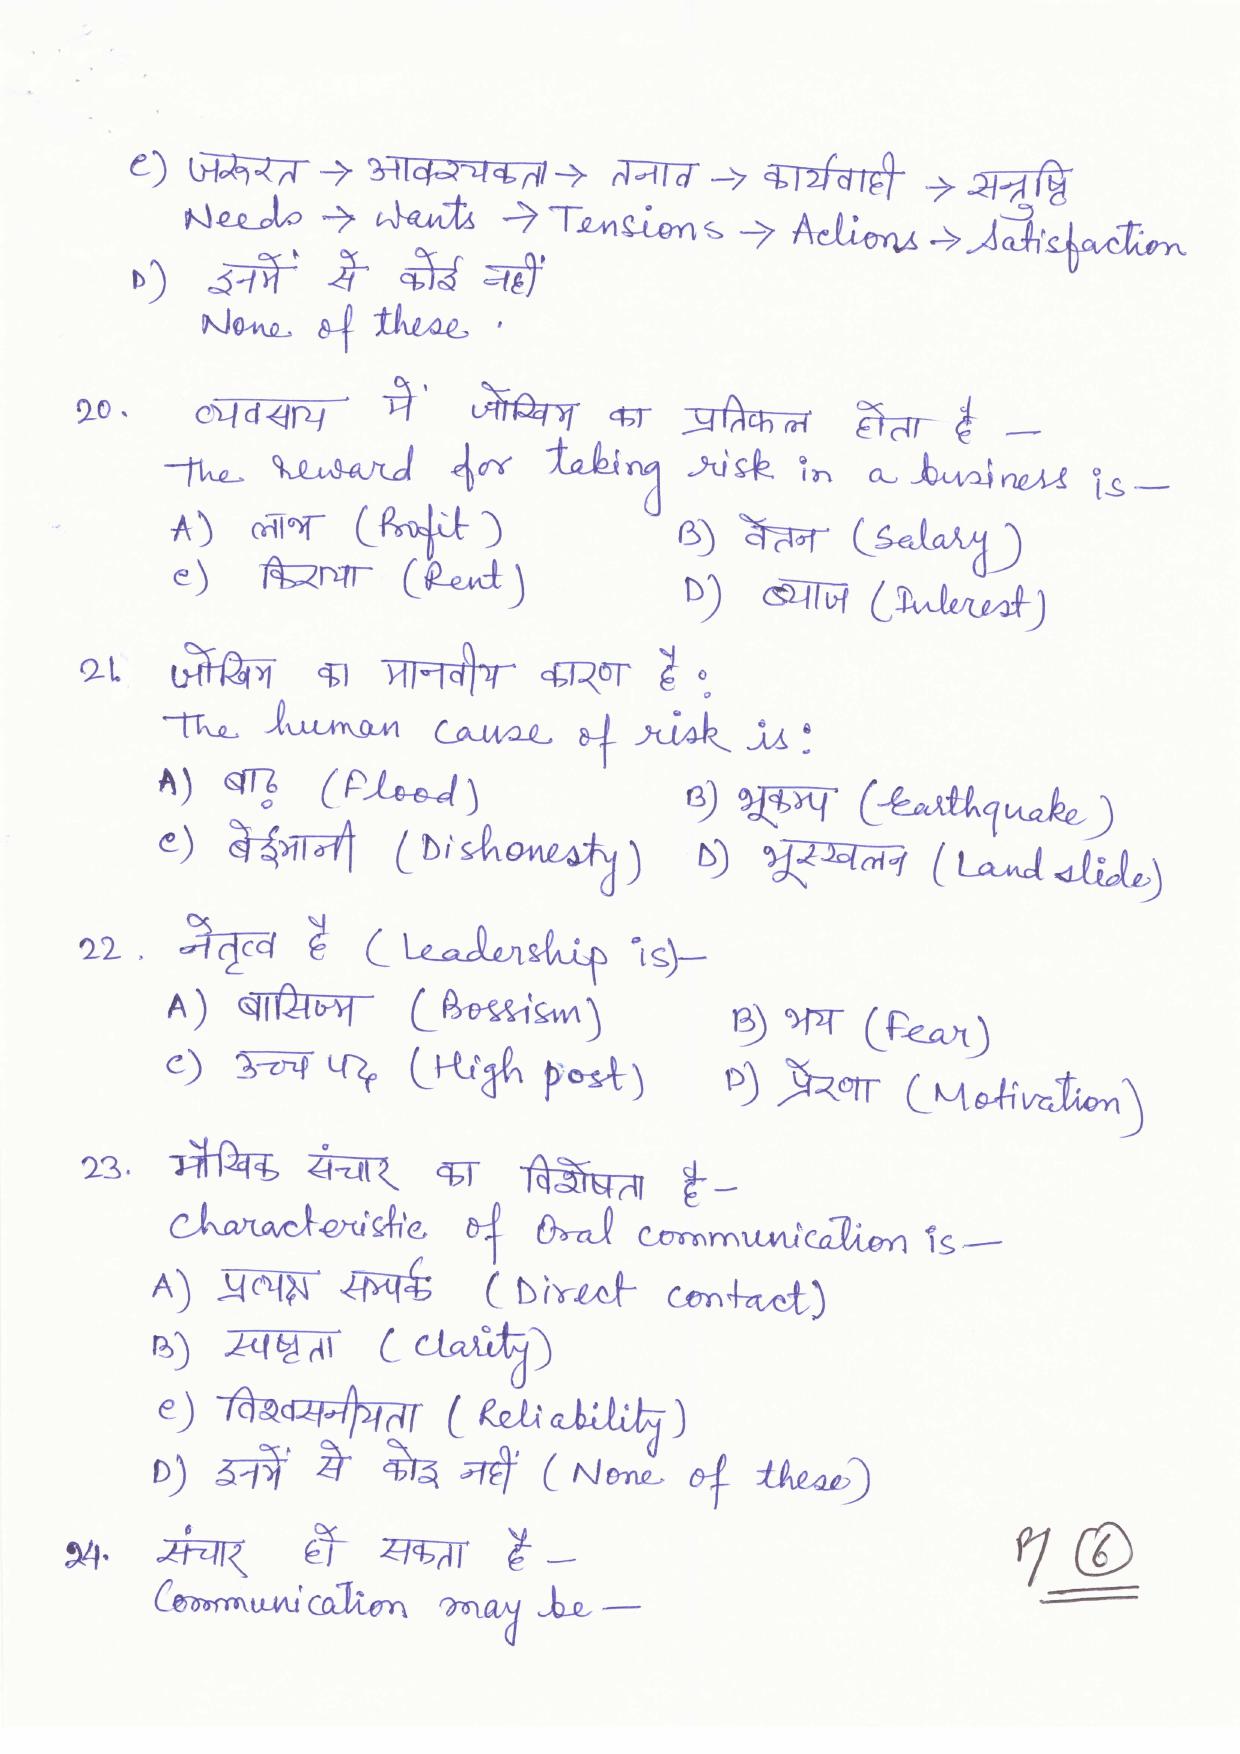 C) जरूरत → आवश्यकता → तनाव → कार्यवाही → सन्तुष्टि
Needs → Wants → Tensions → Actions → Satisfaction
D) इनमें से कोई नहीं
None of these .
20. व्यवसाय में जोखिम का प्रतिफल होता है —
The reward for taking risk in a business is —
A) लाभ (Profit) B) वेतन (Salary)
C) किराया (Rent) D) ब्याज (Interest)
21. जोखिम का मानवीय कारण है :
The human cause of risk is :
A) बाढ़ (Flood) B) भूकम्प (Earthquake)
C) बेईमानी (Dishonesty) D) भूस्खलन (Land slide)
22. नेतृत्व है (Leadership is) —
A) बासिज्म (Bossism) B) भय (Fear)
C) उच्च पद (High post) D) प्रेरणा (Motivation)
23. मौखिक संचार का विशेषता है —
Characteristic of Oral communication is —
A) प्रत्यक्ष सम्पर्क (Direct contact)
B) स्पष्टता (Clarity)
C) विश्वसनीयता (Reliability)
D) इनमें से कोइ नहीं (None of these)
24. संचार हो सकता है —
Communication may be —
6